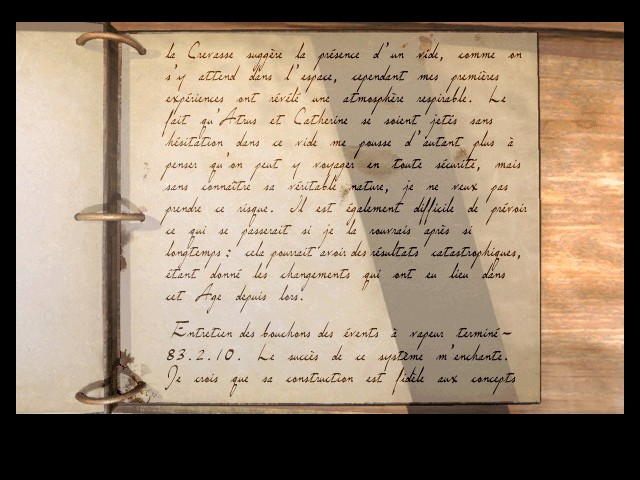 la Crevasse suggère la présence d'un vide, comme on
s'y attend dans l'espace, cependant mes premières
expériences ont révélé une atmosphère respirable. Le
fait qu'Atrus et Catherine se soient jetés sans
hésitation dans ce vide me pousse d'autant plus à
penser qu'on peut y voyager en toute sécurité, mais
sans connaître sa véritable nature, je ne veux pas
prendre ce risque. Il est également difficile de prévoir
ce qui se passerait si je la rouvrais après si
longtemps : cela pourrait avoir des résultats catastrophiques,
étant donné les changements qui ont eu lieu dans
cet Age depuis lors.
Entretien des bouchons des évents à vapeur terminé-
83.2.10. Le succès de ce système m'enchante.
Je crois que sa construction est fidèle aux concepts